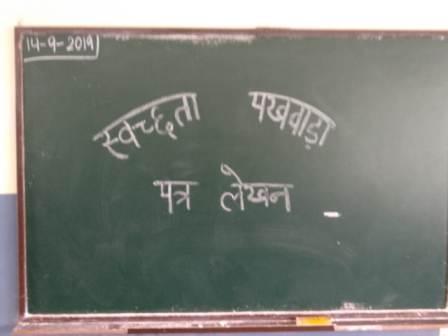 14-9-2019
स्वच्छता पखवाड़ा
पत्र लेखन